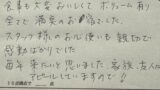 食事も大変おいしくて ボリューム有り
全てで満突のお宿でした。
スタッフ様のお心使いも親切で
感動ばかりでした
毎年来たいと思いました 家族、友人に
アピールしていきますので!!